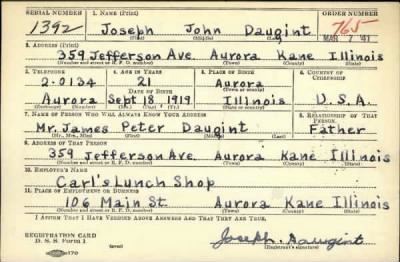 SERIAL NUMBER 1. NAME (Print) ORDER NUMBER
1392 Joseph John Daugint 765
(First) (Middle) (Last) MAR 7 '41
2. ADDRESS (Print)
359 Jefferson Ave. Aurora Kane Illinois
(Number and street or R. F. D. number) (Town) (County) (State)
3. TELEPHONE 4. AGE IN YEARS 5. PLACE OF BIRTH 6. COUNTRY OF CITIZENSHIP
2-0134 21 Aurora
DATE OF BIRTH
Aurora Sept 18 1919 Illinois U.S.A.
7. NAME OF PERSON WHO WILL ALWAYS KNOW YOUR ADDRESS 8. RELATIONSHIP OF THAT PERSON
Mr. James Peter Daugint Father
(Mr., Mrs., Miss) (First) (Middle) (Last)
9. ADDRESS OF THAT PERSON
359 Jefferson Ave. Aurora Kane Illinois
(Number and street or R. F. D. number) (Town) (County) (State)
10. EMPLOYER'S NAME
Carl's Lunch Shop
11. PLACE OF EMPLOYMENT OR BUSINESS
106 Main St. Aurora Kane Illinois
(Number and street or R. F. D. number) (Town) (County) (State)
I AFFIRM THAT I HAVE VERIFIED ABOVE ANSWERS AND THAT THEY ARE TRUE.
REGISTRATION CARD
D. S. S. Form 1 Joseph Daugint
(over)